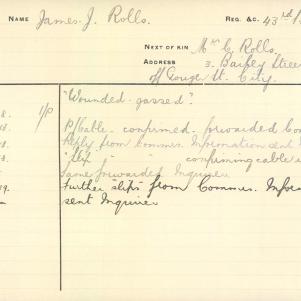 NAME James. J. Rolls. REG. &C. 43rd
NEXT OF KIN Mr C Rolls.
ADDRESS 3. Street
off Gouger St. City.
1/P "Wounded. gassed".
P/Cable. confirmed. forwarded
Reply from Commrs. Information sent
"Slip" " " confirming cable
Same forwarded Inquirer
Further "slip" from Commrs. Infor
sent Inquirer